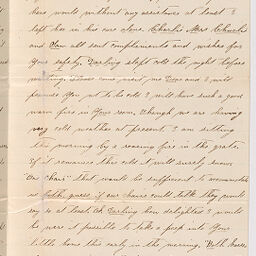 here would without any assistance at least I
left her in his care alone. Charlie Mrs Church
and Van all sent complements and wishes for
your safety. Darling slept cold the night before
come over next me Van and I will
promise You not to be cold I will have such a good
warm fire in Your room. Though we are having
very cold weather at present. I am setting
this morning by a roaring fire in the grate.
If it remains this cold it will surely snow
"One Chair" that would be sufficient to accommodate
us both. guess if our chairs could talk they would
say so at least. Oh Darling how delighted I would
be were it possible to take a peep into Your
little home this early in the morning. With